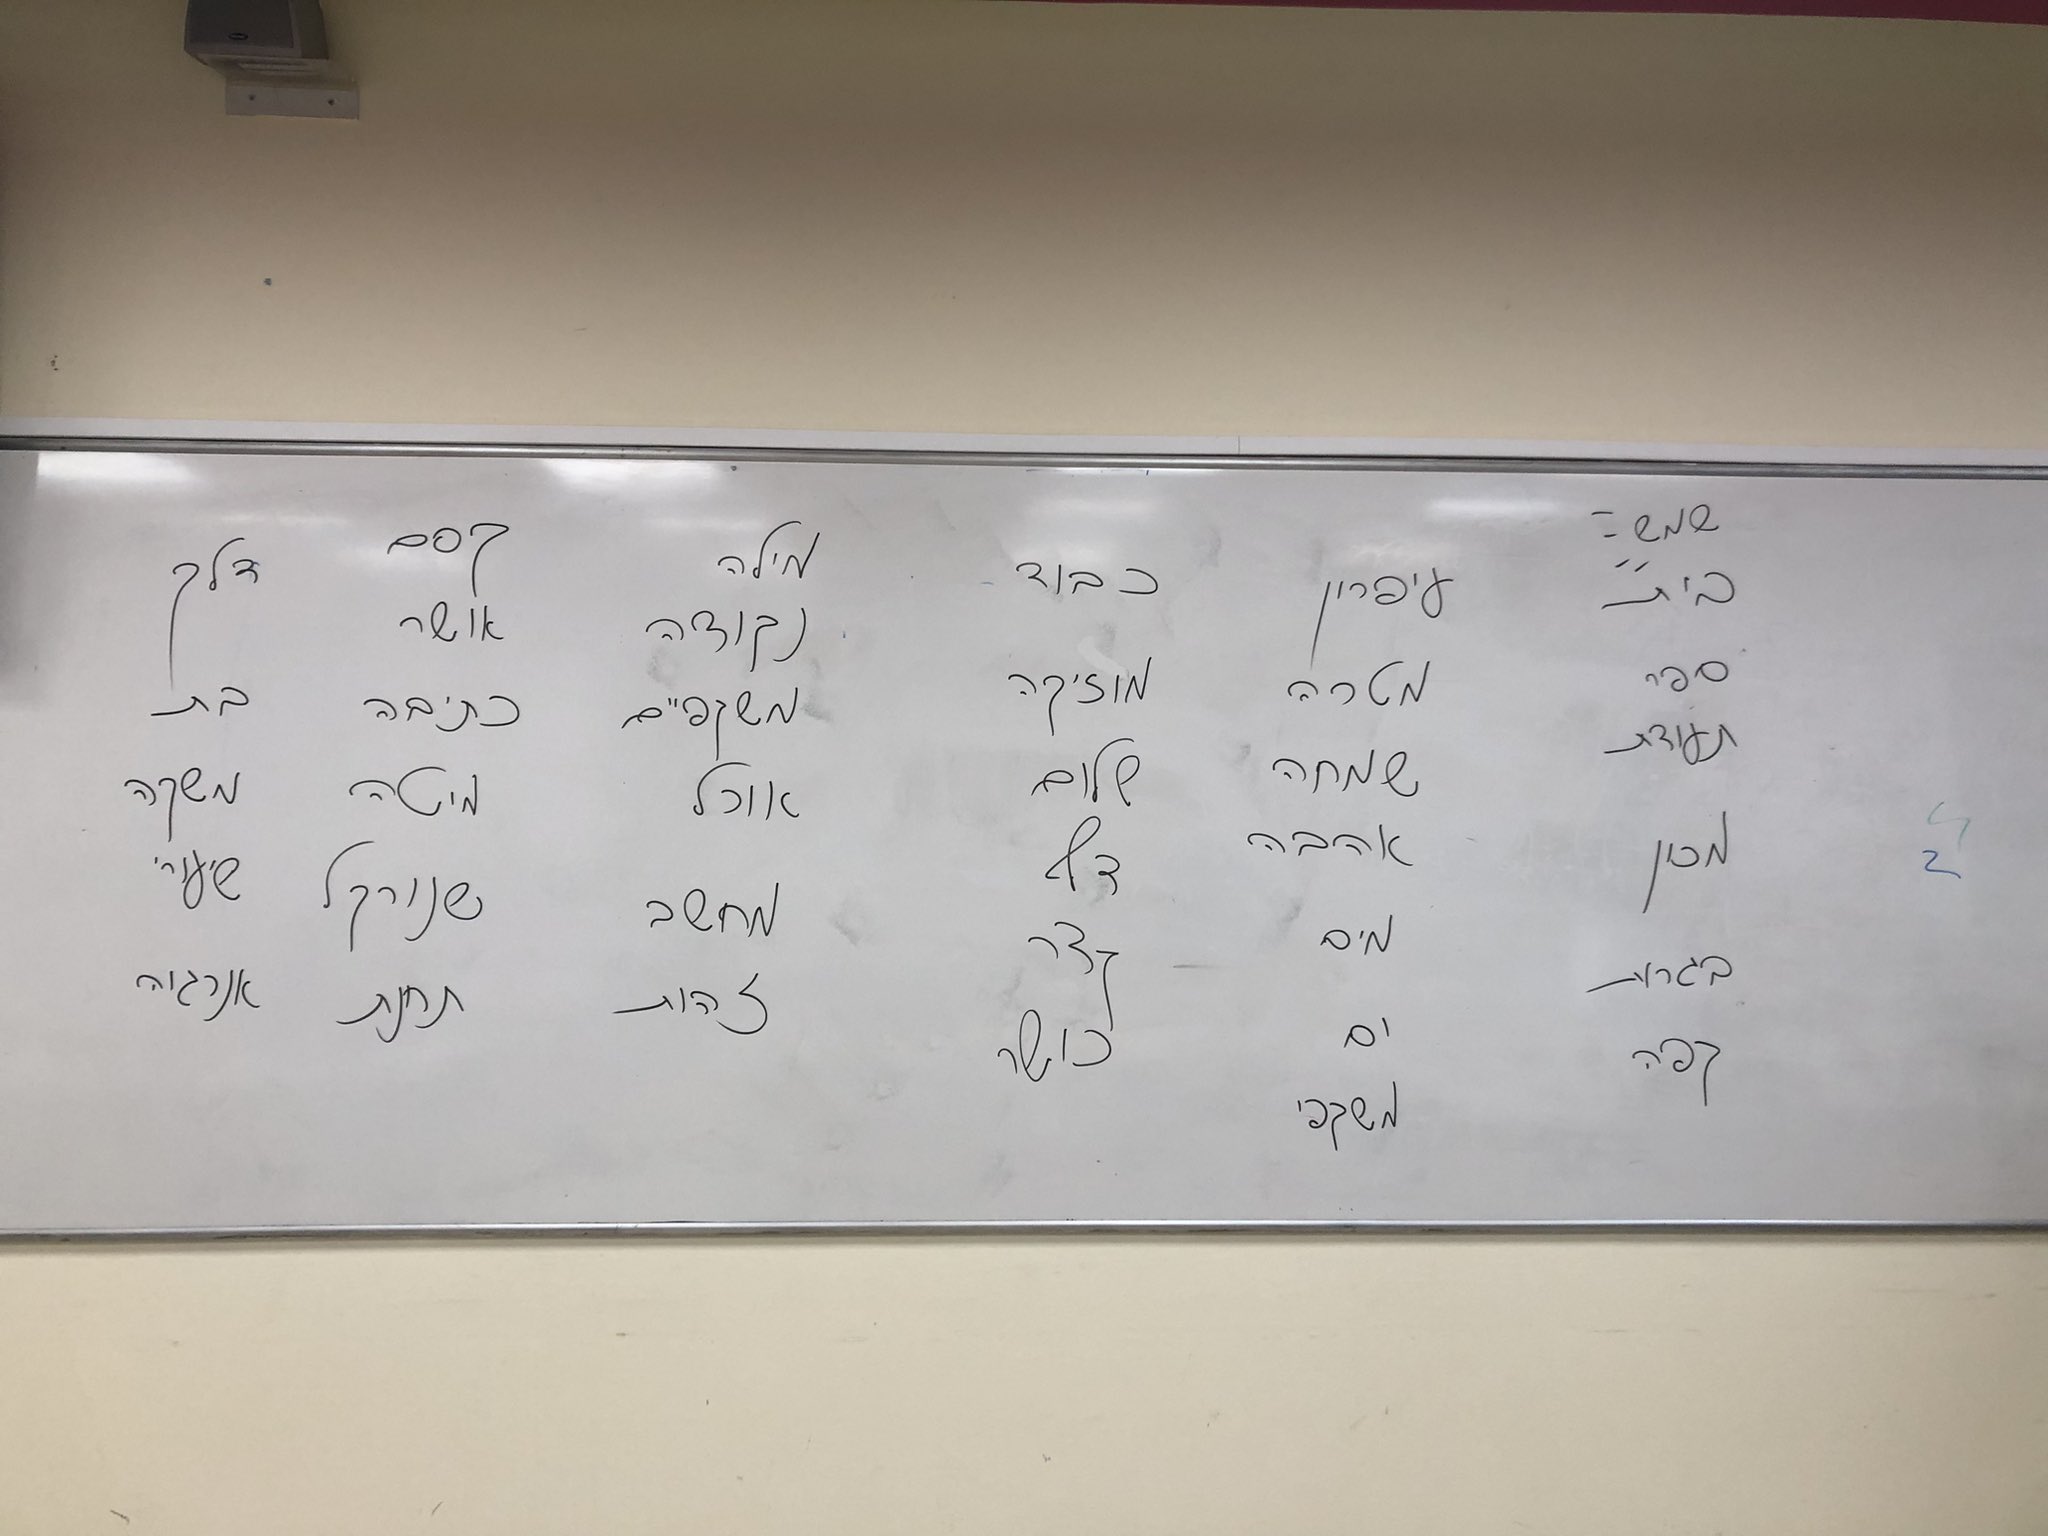 שמש =
בית
ספר
תעודת
מכון
בגרות
קפה
עיפרון
מטרה
שמחה
אהבה
מים
ים
משקפי
כבוד
מוזיקה
שלום
דף
קדר
כושר
מילה
נקודה
משקפיים
אוכל
מחשב
זהות
קסם
אושר
כתיבה
מיטה
שנורקל
תחנת
דלק
בת
משקה
שיעורי
אנרגיה